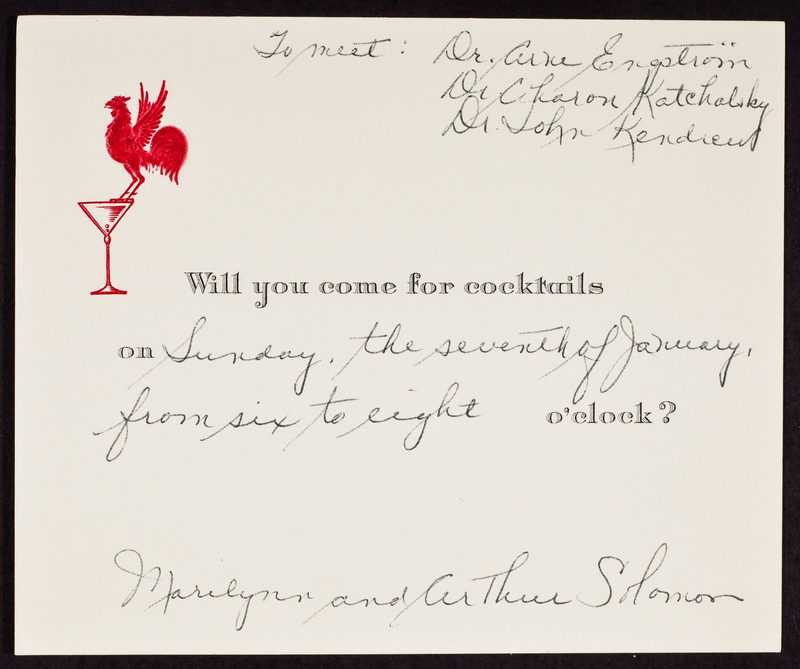 To meet: Dr. Arne Engström
Dr Aharon Katchalsky
Dr. John Kendrew
Will you come for cocktails
on Sunday, the seventh of January,
from six to eight o'clock?
Marilynn and Arthur Solomon